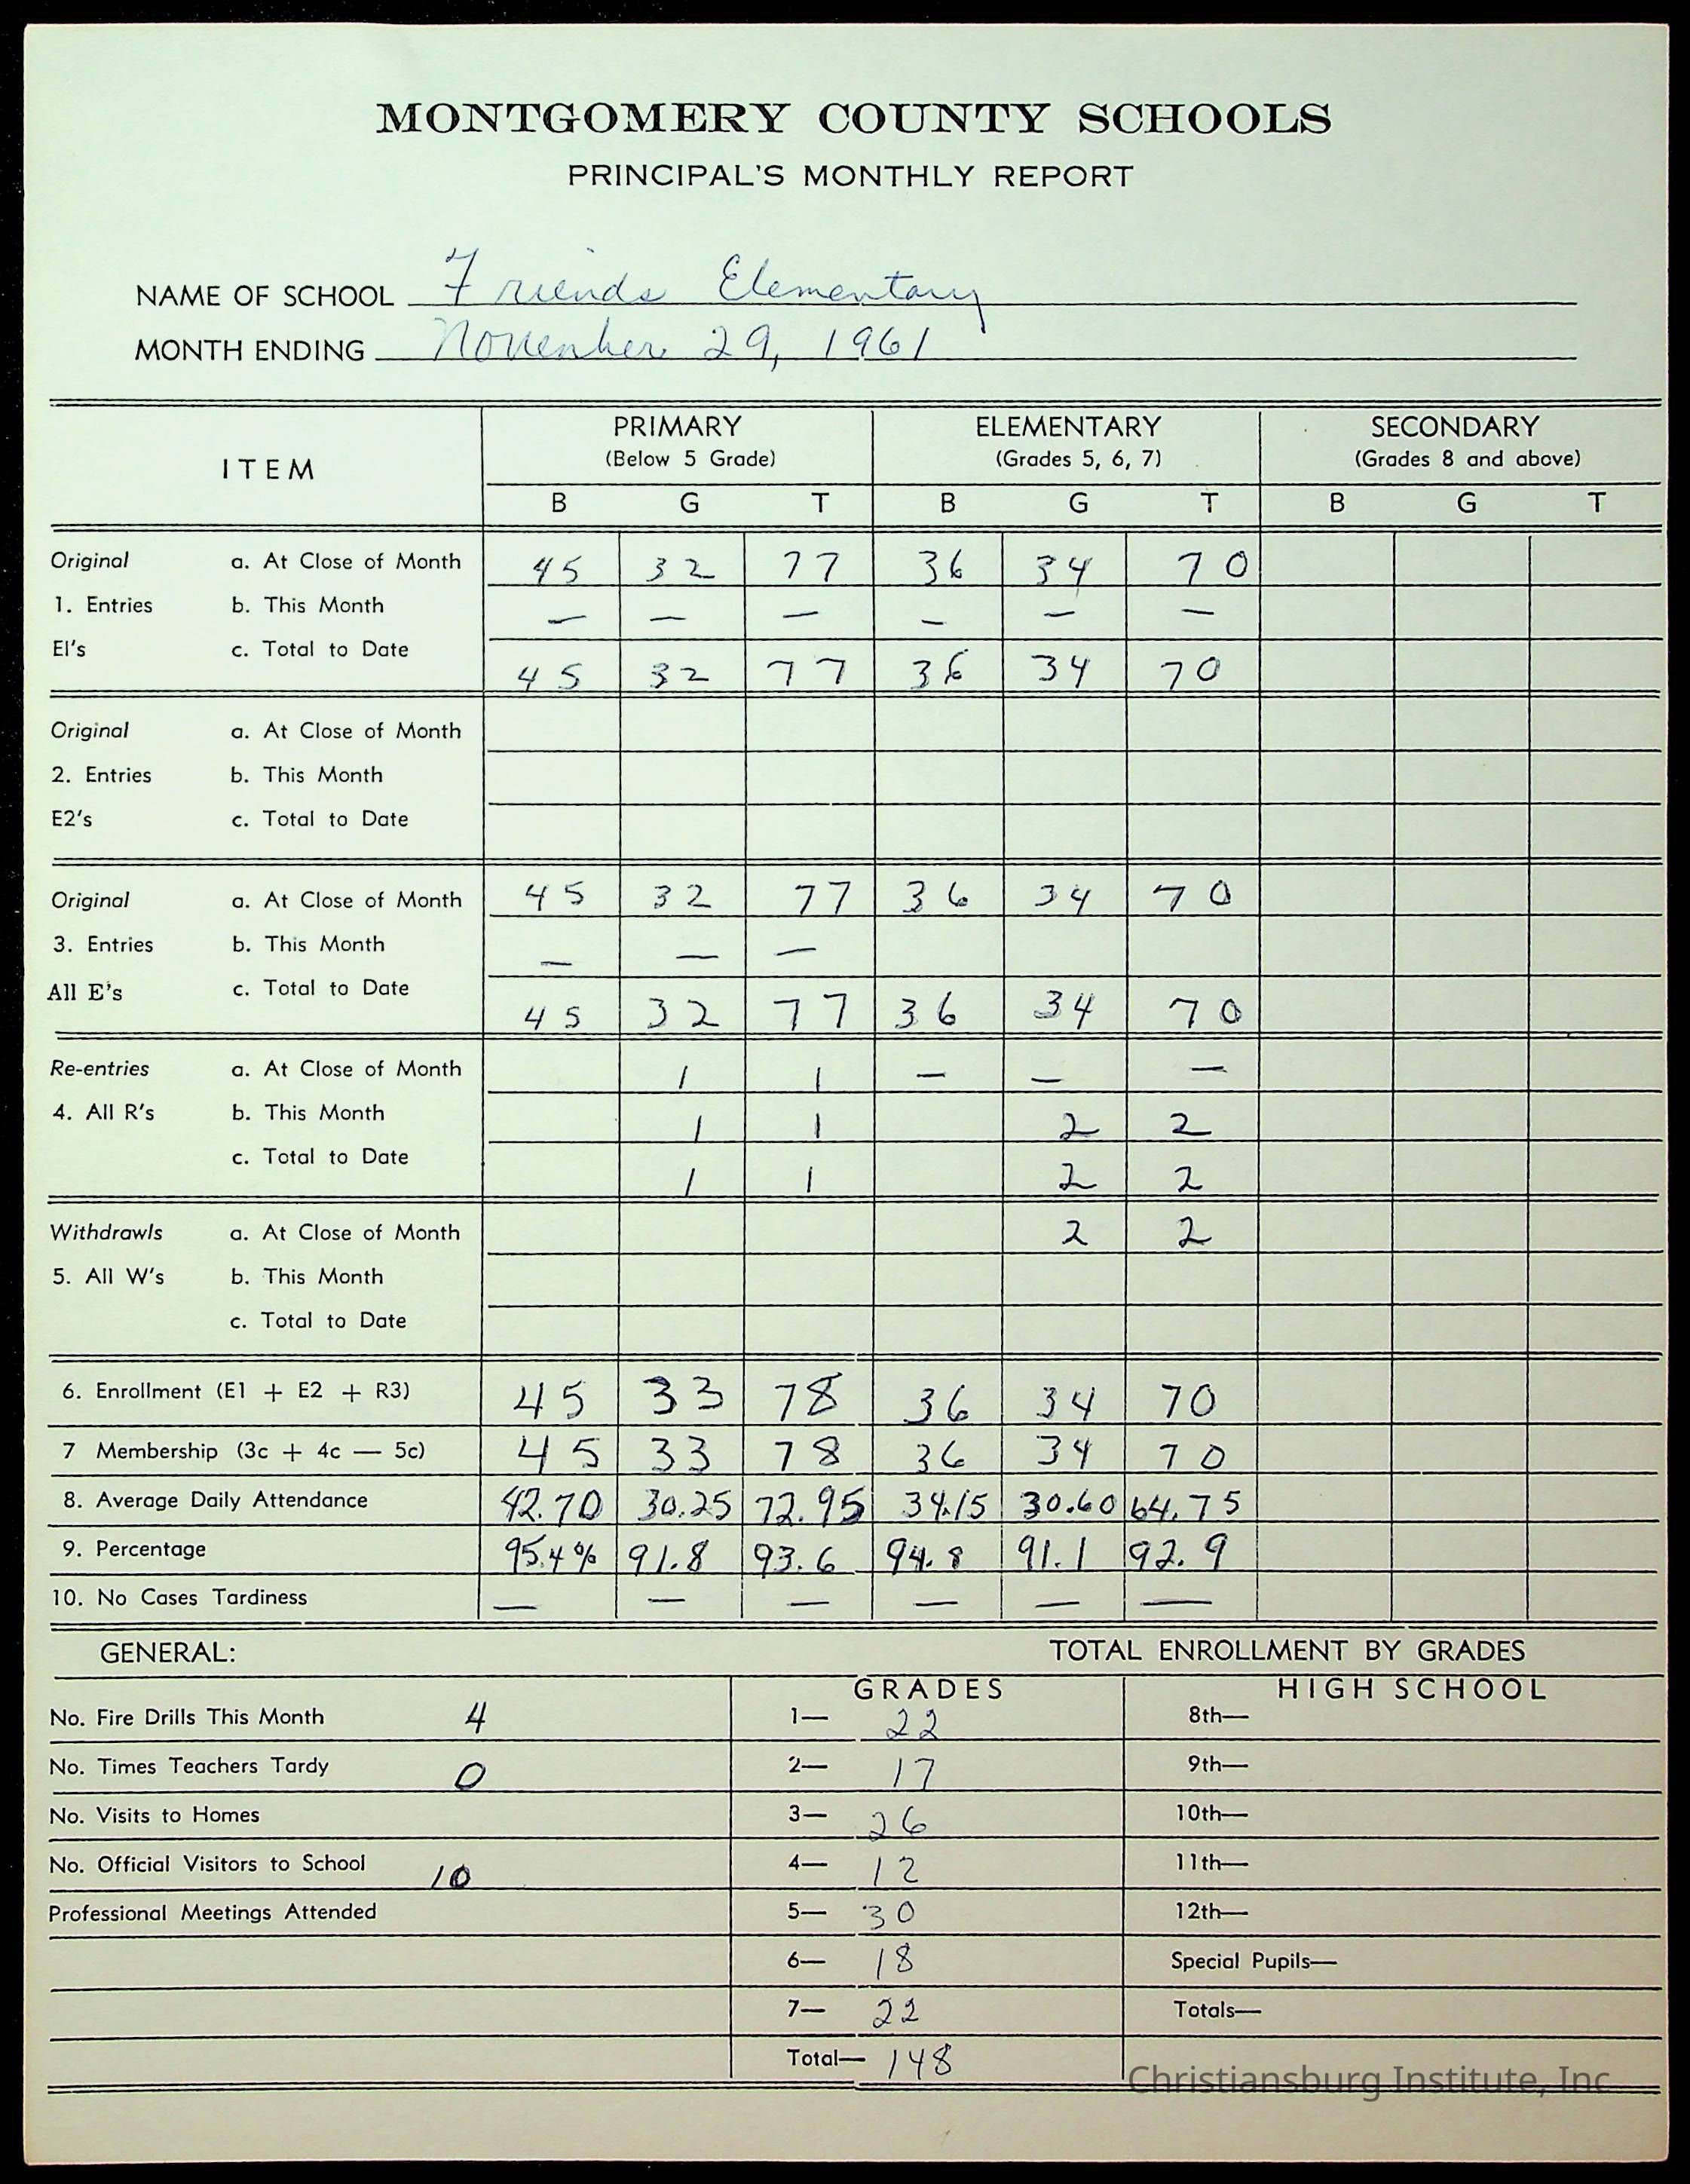 MONTGOMERY COUNTY SCHOOLS
PRINCIPAL'S MONTHLY REPORT
NAME OF SCHOOL Friends Elementary
MONTH ENDING November 29, 1961
ITEM PRIMARY (Below 5 Grade) ELEMENTARY (Grades 5, 6, 7) SECONDARY (Grades 8 and above)
B G T B G T B G T
Original a. At Close of Month 45 32 77 36 34 70
1. Entries b. This Month — — — — — —
El's c. Total to Date 45 32 77 36 34 70
Original a. At Close of Month
2. Entries b. This Month
E2's c. Total to Date
Original a. At Close of Month 45 32 77 36 34 70
3. Entries b. This Month — — —
All E's c. Total to Date 45 32 77 36 34 70
Re-entries a. At Close of Month 1 1 — — —
4. All R's b. This Month 1 1 2 2
c. Total to Date 1 1 2 2
Withdrawls a. At Close of Month 2 2
5. All W's b. This Month
c. Total to Date
6. Enrollment (E1 + E2 + R3) 45 33 78 36 34 70
7 Membership (3c + 4c — 5c) 45 33 78 36 34 70
8. Average Daily Attendance 42.70 30.25 72.95 34.15 30.60 64.75
9. Percentage 95.4% 91.8 93.6 94.8 91.1 92.9
10. No Cases Tardiness — — — — — —
GENERAL: TOTAL ENROLLMENT BY GRADES
GRADES HIGH SCHOOL
No. Fire Drills This Month 4 1— 22 8th—
No. Times Teachers Tardy 0 2— 17 9th—
No. Visits to Homes 3— 26 10th—
No. Official Visitors to School 10 4— 12 11th—
Professional Meetings Attended 5— 30 12th—
6— 18 Special Pupils—
7— 22 Totals—
Total— 148
Christiansburg Institute, Inc